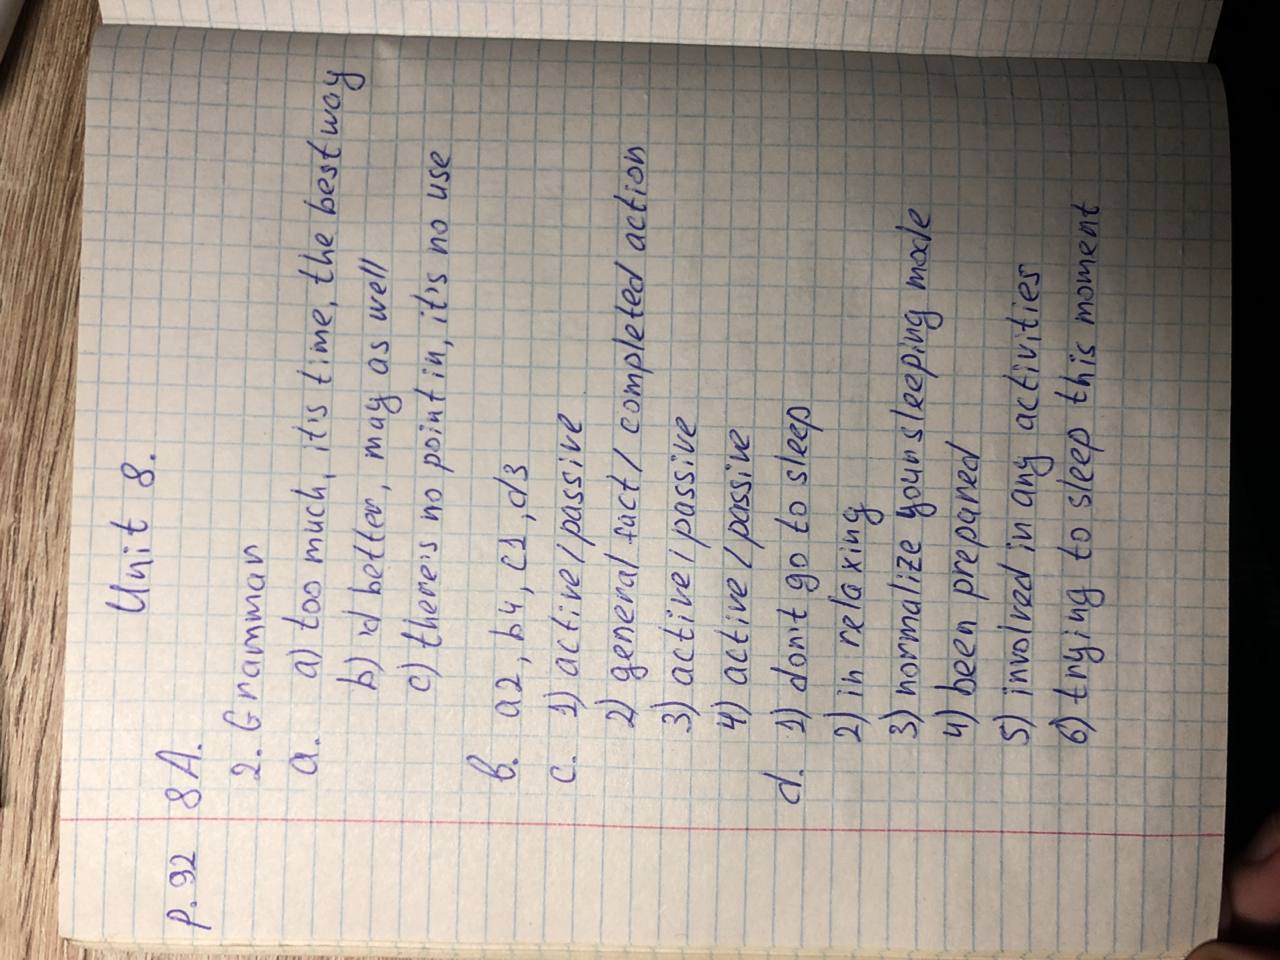 Unit 8.
p. 92 8A.
2. Grammar
a. a) too much, it's time, the best way
b) 'd better, may as well
c) there's no point in, it's no use
b. a2, b4, c1, d3
c. 1) active/passive
2) general fact/ completed action
3) active/passive
4) active/passive
d. 1) don't go to sleep
2) in relaxing
3) normalize your sleeping mode
4) been prepared
5) involved in any activities
6) trying to sleep this moment